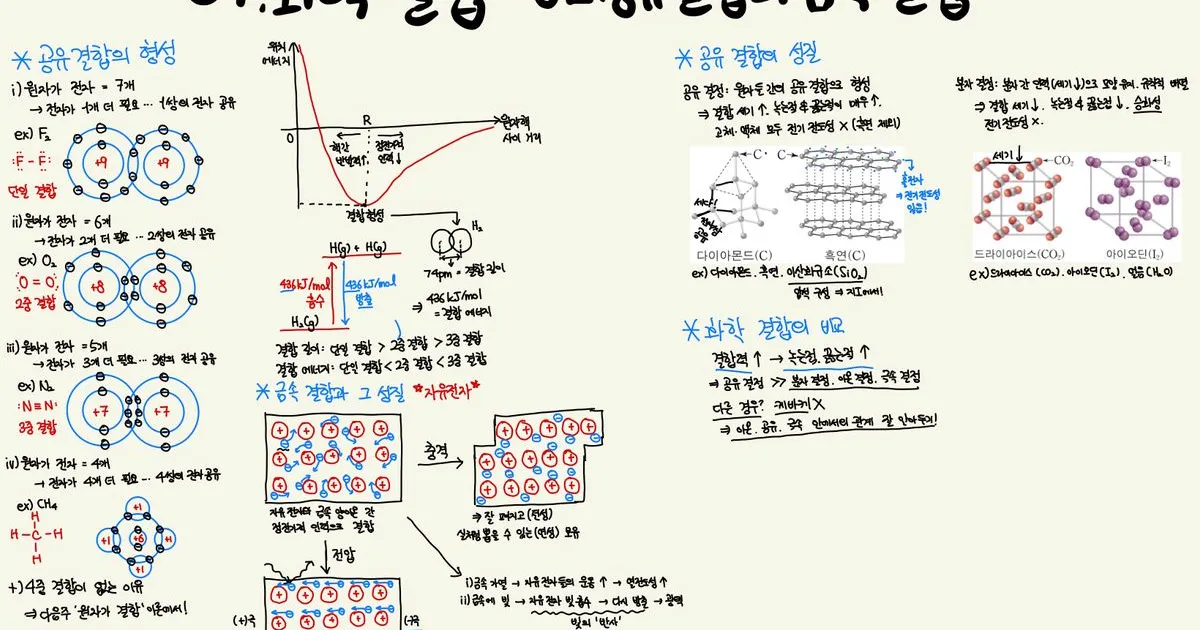 * 공유 결합의 형성
i) 원자가 전자 = 7개
→ 전자가 1개 더 필요 ... 1쌍의 전자 공유
ex) F₂
:F̈-F̈:
+9 +9
단일 결합
ii) 원자가 전자 = 6개
→ 전자가 2개 더 필요 ... 2쌍의 전자 공유
ex) O₂
:O=O:
+8 +8
2중 결합
iii) 원자가 전자 = 5개
→ 전자가 3개 더 필요 ... 3쌍의 전자 공유
ex) N₂
:N≡N:
+7 +7
3중 결합
iv) 원자가 전자 = 4개
→ 전자가 4개 더 필요 ... 4쌍의 전자 공유
ex) CH₄
H
H-C-H
H
+1
+1 +6 +1
+1
+) 4중 결합이 없는 이유
⇒ '원자가 결합' 이론에서!
위치
에너지
0
R
원자핵
사이 거리
핵간
반발력↑
정전기적
인력↓
결합형성
H₂
74pm = 결합 길이
H(g) + H(g)
436kJ/mol
흡수
436kJ/mol
방출
H₂(g)
⇒ 436kJ/mol
= 결합 에너지
결합 길이: 단일 결합 > 2중 결합 > 3중 결합
결합 에너지: 단일 결합 < 2중 결합 < 3중 결합
* 금속 결합과 그 성질 *자유전자*
자유 전자와 금속 양이온 간
정전기적 인력으로 결합
충격
⇒ 잘 펴지고(전성)
실처럼 뽑을 수 있는(연성) 모유
전압
(+)극 (-)극
i) 금속 가열 → 자유 전자들의 운동↑ → 열전도성↑
ii) 금속에 빛 → 자유전자 빛 흡수 → 다시 방출 → 광택
빛의 '반사'
* 공유 결합의 성질
공유 결정: 원자들 간의 공유 결합으로 형성
⇒ 결합 세기↑. 녹는점&끓는점이 매우↑.
고체·액체 모두 전기 전도성 X (흑연 제외)
C C
세다!
다이아몬드(C)
흑연(C)
홑전자
⇒ 전기전도성
있음!
ex) 다이아몬드. 흑연. 이산화규소(SiO₂)
분자 결정: 분자 간 인력(세기↓)으로 모양 유지. 규칙적 배열
⇒ 결합 세기↓. 녹는점&끓는점↓. 승화성
전기 전도성 X.
세기↓
CO₂
I₂
드라이아이스(CO₂)
아이오딘(I₂)
ex) 드라이아이스(CO₂). 아이오딘(I₂). 얼음(H₂O)
* 화학 결합의 비교
결합력↑ → 녹는점. 끓는점↑
⇒ 공유 결정 >> 분자 결정. 이온 결정. 금속 결정
다른 경우? 케바케 X
⇒ 이온. 공유. 금속 안에서의 관계 잘 알아두기!